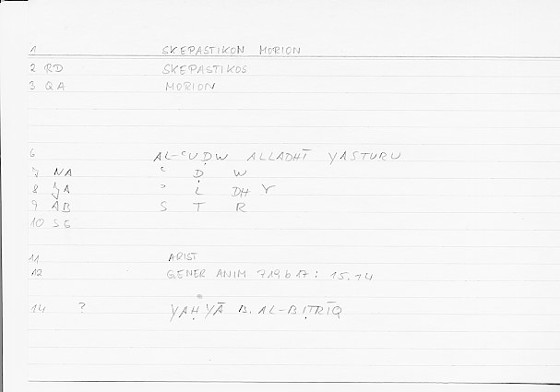 1 SKEPASTIKON MORION
2 RD SKEPASTIKOS
3 QA MORION
6 AL-ʿUḌW ALLADHĪ YASTURU
7 NA ʿ Ḍ W
8 JA ʾ L DH Y
9 AB S T R
10 SG
11 ARIST
12 GENER ANIM 719 b 17 : 15.14
14 ? YAḤYĀ B. AL-BIṬRĪQ